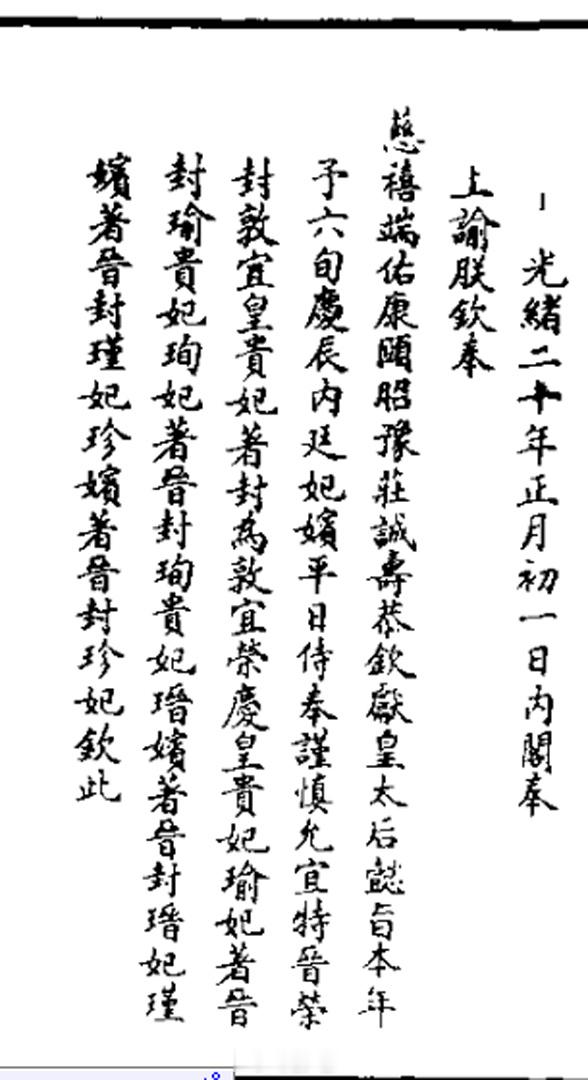 一 光緒二十年正月初一日內閣奉
上諭朕欽奉
慈禧端佑康頤昭豫莊誠壽恭欽獻皇太后懿旨本年
予六旬慶辰內廷妃嬪平日侍奉謹慎允宜特晉榮
封敦宜皇貴妃著封為敦宜榮慶皇貴妃瑜妃著晉
封瑜貴妃珣妃著晉封珣貴妃瑨嬪著晉封瑨妃瑾
嬪著晉封瑾妃珍嬪著晉封珍妃欽此